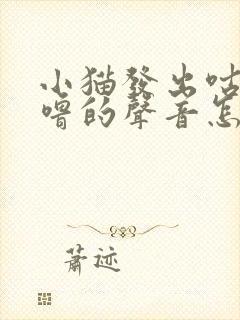 小猫發出咕
嚕的聲音怎
蕭迹